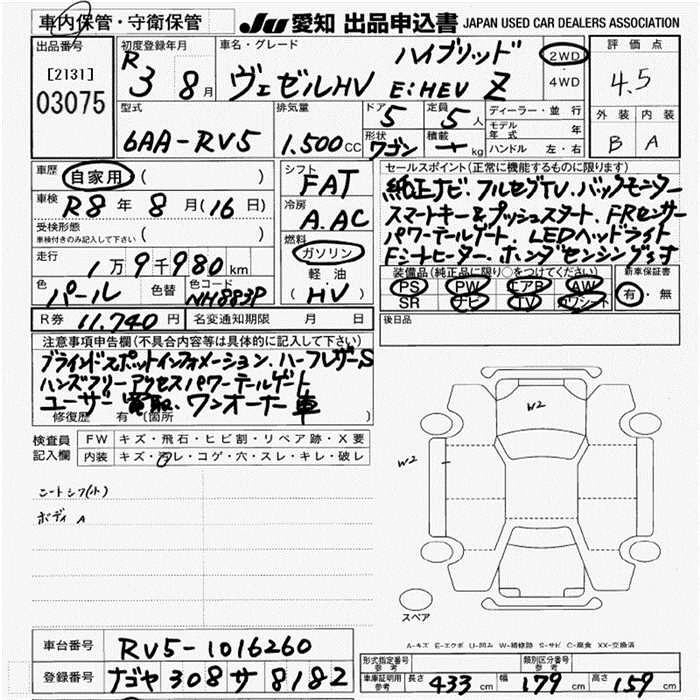 車内保管・守衛保管
JU 愛知 出品申込書 JAPAN USED CAR DEALERS ASSOCIATION
出品番号
[2131]
03075
初度登録年月
R 3 8月
車名・グレード
ハイブリッド
ヴェゼルHV e:HEV Z
2WD
4WD
評価点
4.5
外装 内装
B A
型式
6AA-RV5
排気量
1.500cc
ドア
5
定員
5人
形状
ワゴン
積載
kg
ディーラー・並行
モデル年式 年
ハンドル 左・右
車歴
自家用 ( )
車検
R8年8月(16日)
受検形態
車検付きのみ記入して下さい ( )
走行
1万9千980km
色
パール
色替
色コード
NH883P
シフト
FAT
冷房
A.AC
燃料
ガソリン
軽油
(HV)
セールスポイント(正常に機能するものに限ります)
純正ナビ、フルセグTV、バックモニター
スマートキー&プッシュスタート、FRセンサー
パワーテールゲート、LEDヘッドライト
Fシートヒーター、ホンダセンシング
装備品(純正品に限り○をつけてください)
PS PW エアB AW
SR ナビ TV カワシート
新車保証書
有・無
R券 11.740円 名変通知期限 月 日
後日品
注意事項申告欄(不具合内容等は具体的に記入して下さい)
ブラインドスポットインフォメーション、ハーフレザーS
ハンズフリーアクセスパワーテールゲート
ユーザー買取、ワンオーナー車
修復歴 有(箇所 )
検査員記入欄
FW キズ・飛石・ヒビ割・リペア跡・X要
内装 キズ・汚レ・コゲ・穴・スレ・キレ・破レ
ボディ A
W2
W2
スペア
A-キズ E-エクボ U-凹み W-補修跡 S-サビ C-腐食 XX-交換済
車台番号 RV5-1016260
登録番号 ナゴヤ 308 サ 8182
形式指定番号 参考
類別区分番号 参考
車庫証明用 参考 長さ 433cm 幅 179cm 高さ 159cm